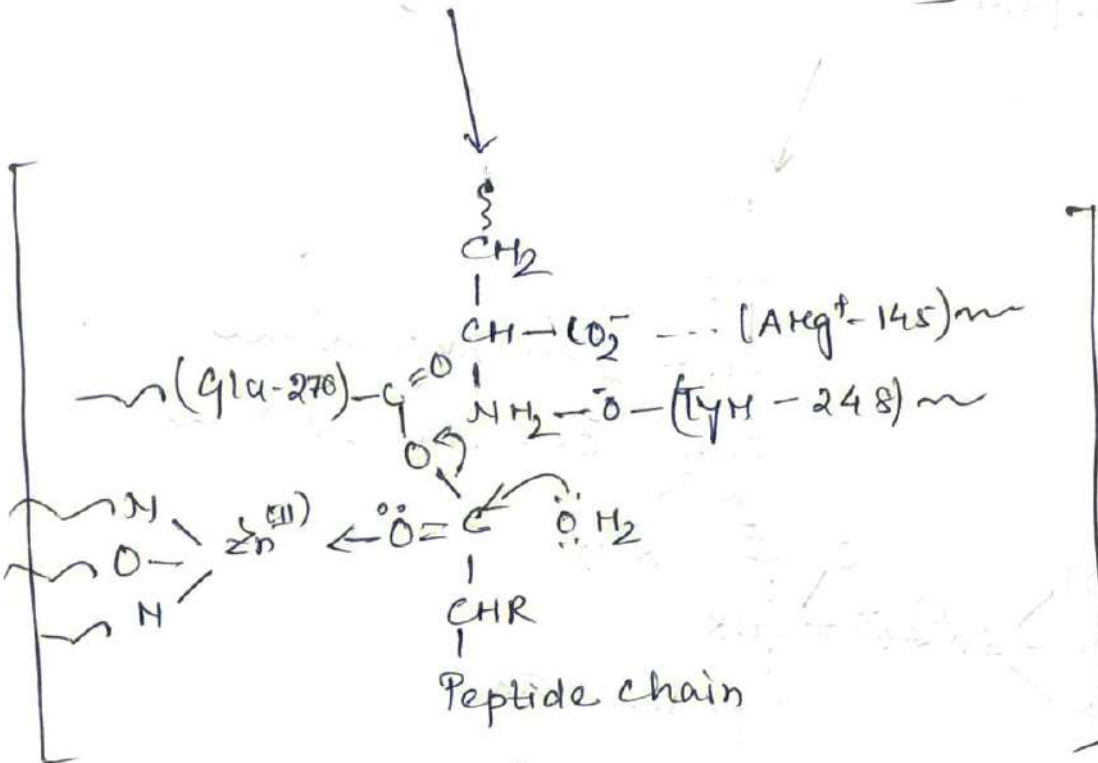 CH2
CH-CO2- ---- (Arg+-145)
(Glu-270)-C=O NH2-O- -(Tyr-248)
O
N
Zn(II) ← Ö=C ÖH2
O-
N
CHR
Peptide chain